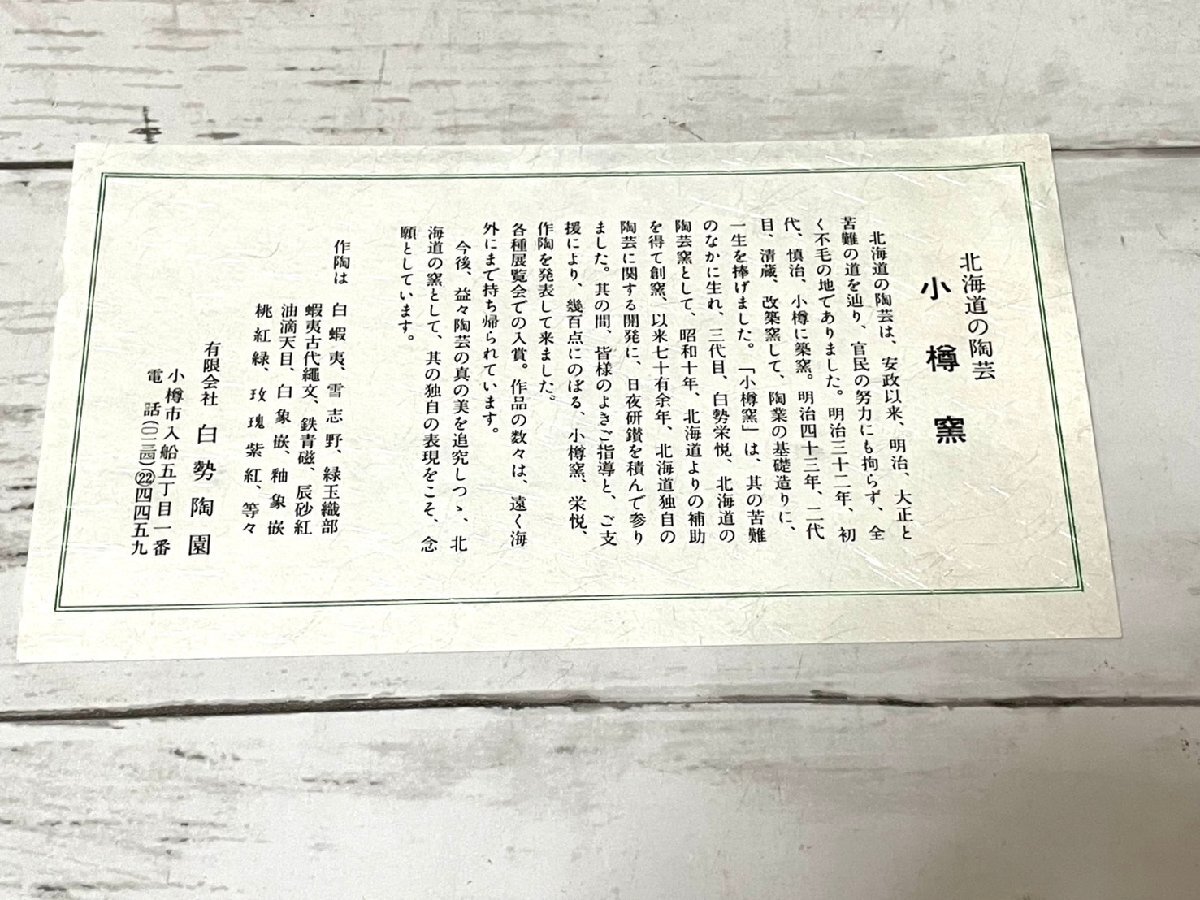 北海道の陶芸
小樽窯
北海道の陶芸は、安政以来、明治、大正と
苦難の道を辿り、官民の努力にも拘らず、全
く不毛の地でありました。明治三十二年、初
代、慎治、小樽に築窯。明治四十三年、二代
目、清蔵、改築窯して、陶業の基礎造りに、
一生を捧げました。「小樽窯」は、其の苦難
のなかに生れ、三代目、白勢栄悦、北海道の
陶芸窯として、昭和十年、北海道よりの補助
を得て創窯、以来七十有余年、北海道独自の
陶芸に関する開発に、日夜研鑚を積んで参り
ました。其の間、皆様のよきご指導と、ご支
援により、幾百点にのぼる、小樽窯、栄悦、
作陶を発表して来ました。
各種展覧会での入賞。作品の数々は、遠く海
外にまで持ち帰られています。
今後、益々陶芸の真の美を追究しつゝ、北
海道の窯として、其の独自の表現をこそ、念
願としています。
作陶は 白蝦夷、雪志野、緑玉織部
蝦夷古代縄文、鉄青磁、辰砂紅
油滴天目、白象嵌、釉象嵌
桃紅緑、玫瑰紫紅、等々
有限会社 白勢陶園
小樽市入船五丁目一番
電話(〇一三四)㉒四四五九